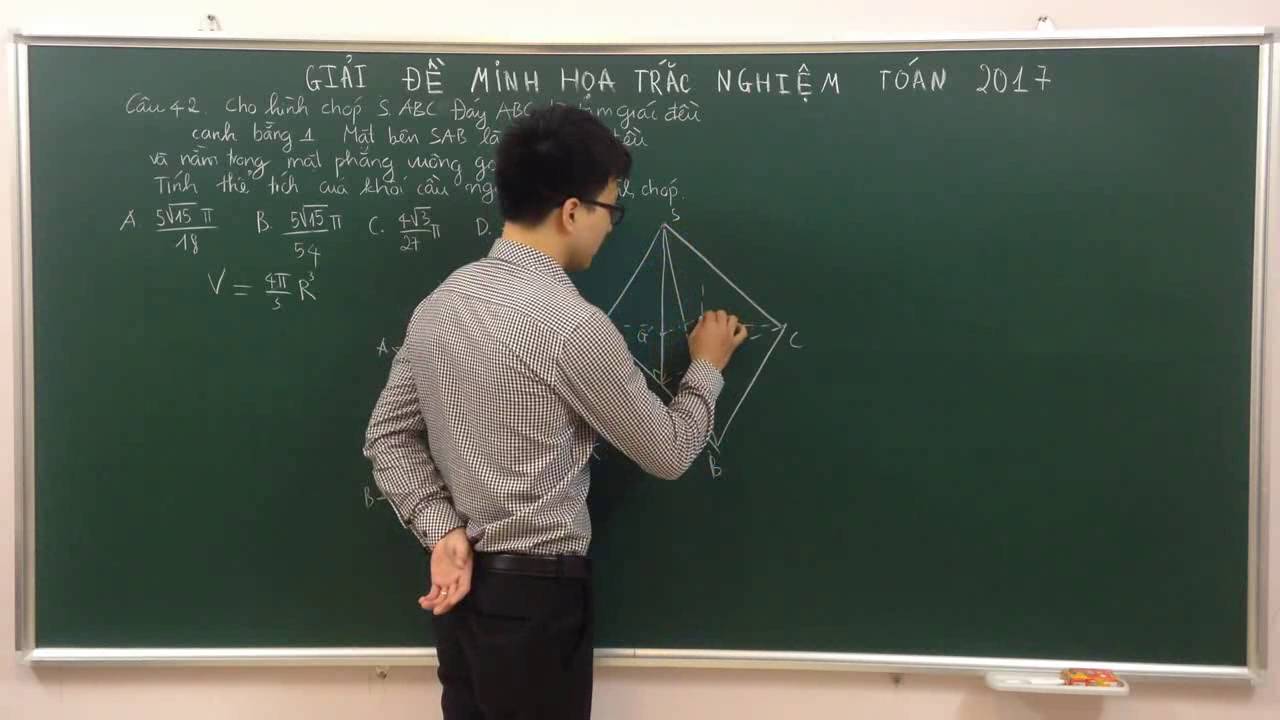 GIẢI ĐỀ MINH HỌA TRẮC NGHIỆM TOÁN 2017
Câu 42. Cho hình chóp S.ABC Đáy ABC giác đều
cạnh bằng 1 Mặt bên SAB là
và nằm trong mặt phẳng vuông
Tính thể tích của khối cầu chóp.
A. 5√15 π / 18 B. 5√15 π / 54 C. 4√3 π / 27 D.
V = 4π/3 R³
S
A
G
C
B
B